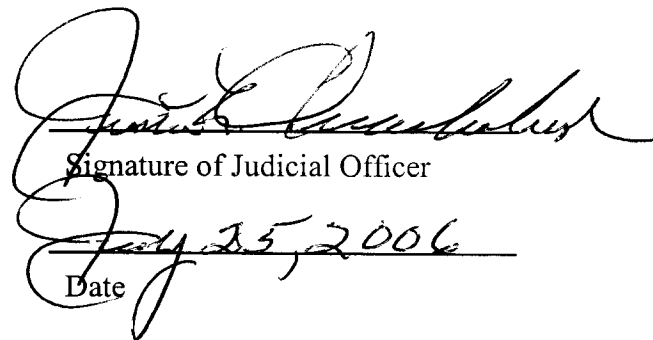 Signature of Judicial Officer
July 25, 2006
Date